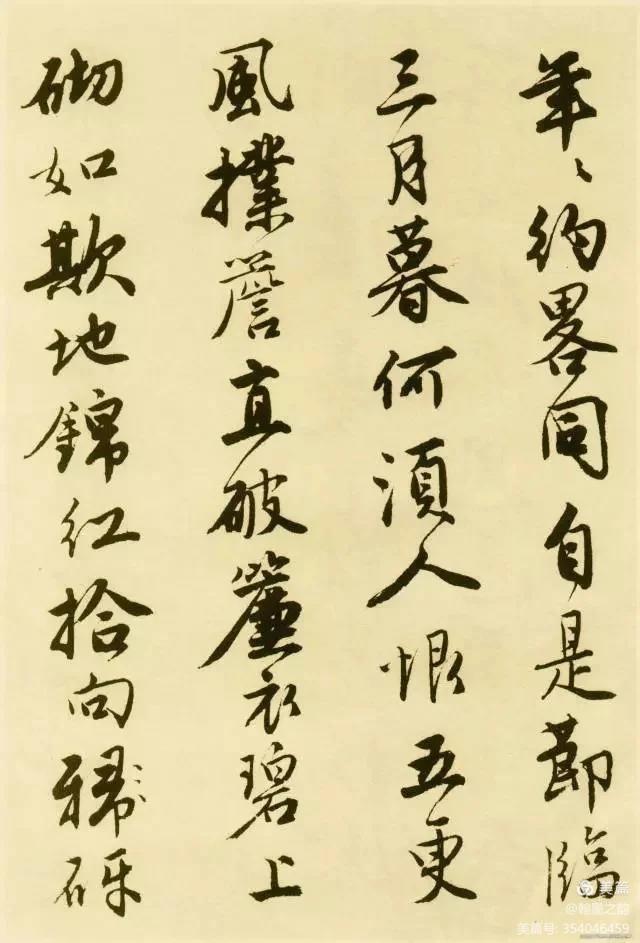 年〻約畧同自是節臨
三月暮何須人恨五更
風撲簷直破簾衣碧上
砌如欺地錦紅拾向砑
美篇
@翰墨之韵
美篇号: 354046459